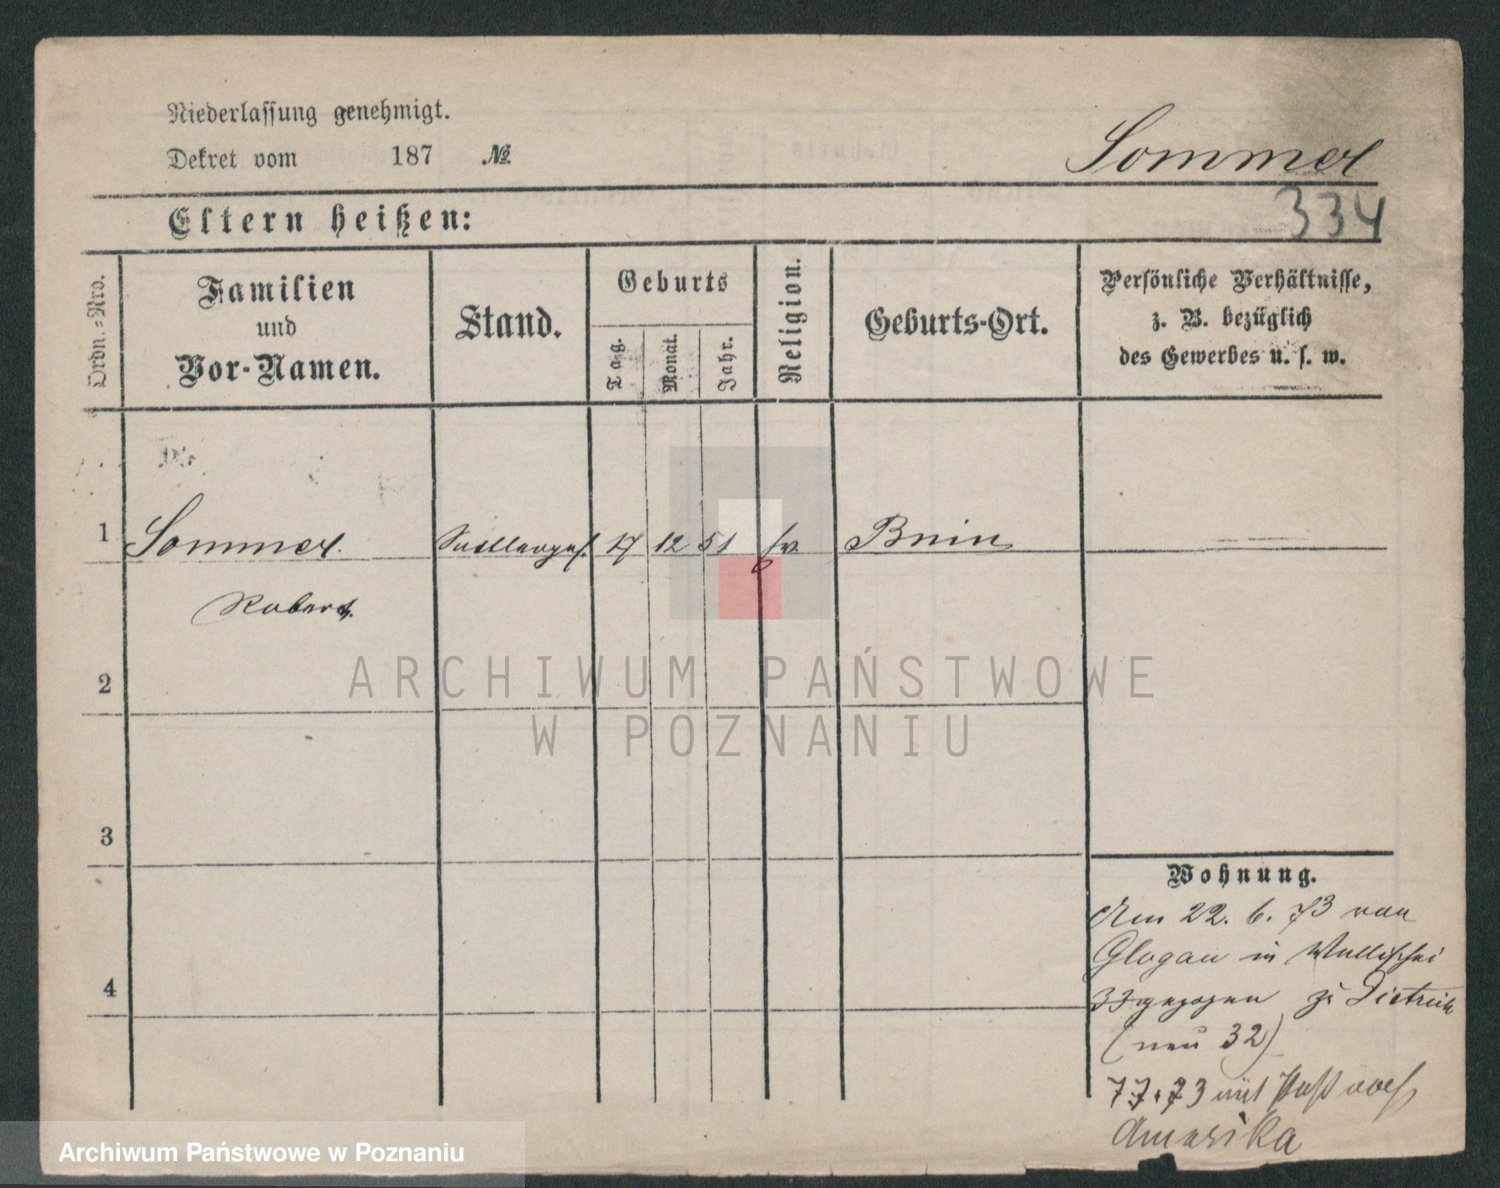 Niederlassung genehmigt.
Dekret vom 187 №
Sommer
334
Eltern heißen:
Ordn.=Nro.
Familien
und
Vor-Namen.
Stand.
Geburts
Tag.
Monat.
Jahr.
Religion.
Geburts-Ort.
Persönliche Verhältnisse,
z. B. bezüglich
des Gewerbes u. s. w.
1
Sommer
17 12 51
Bnin
Robert.
2
3
4
Wohnung.
Am 22. 6. 73 von
Glogau in Wallischei
33 gezogen zu Dietrich
(neu 32)
7 7. 73 mit Paß nach
Amerika
ARCHIWUM PAŃSTWOWE
W POZNANIU
Archiwum Państwowe w Poznaniu